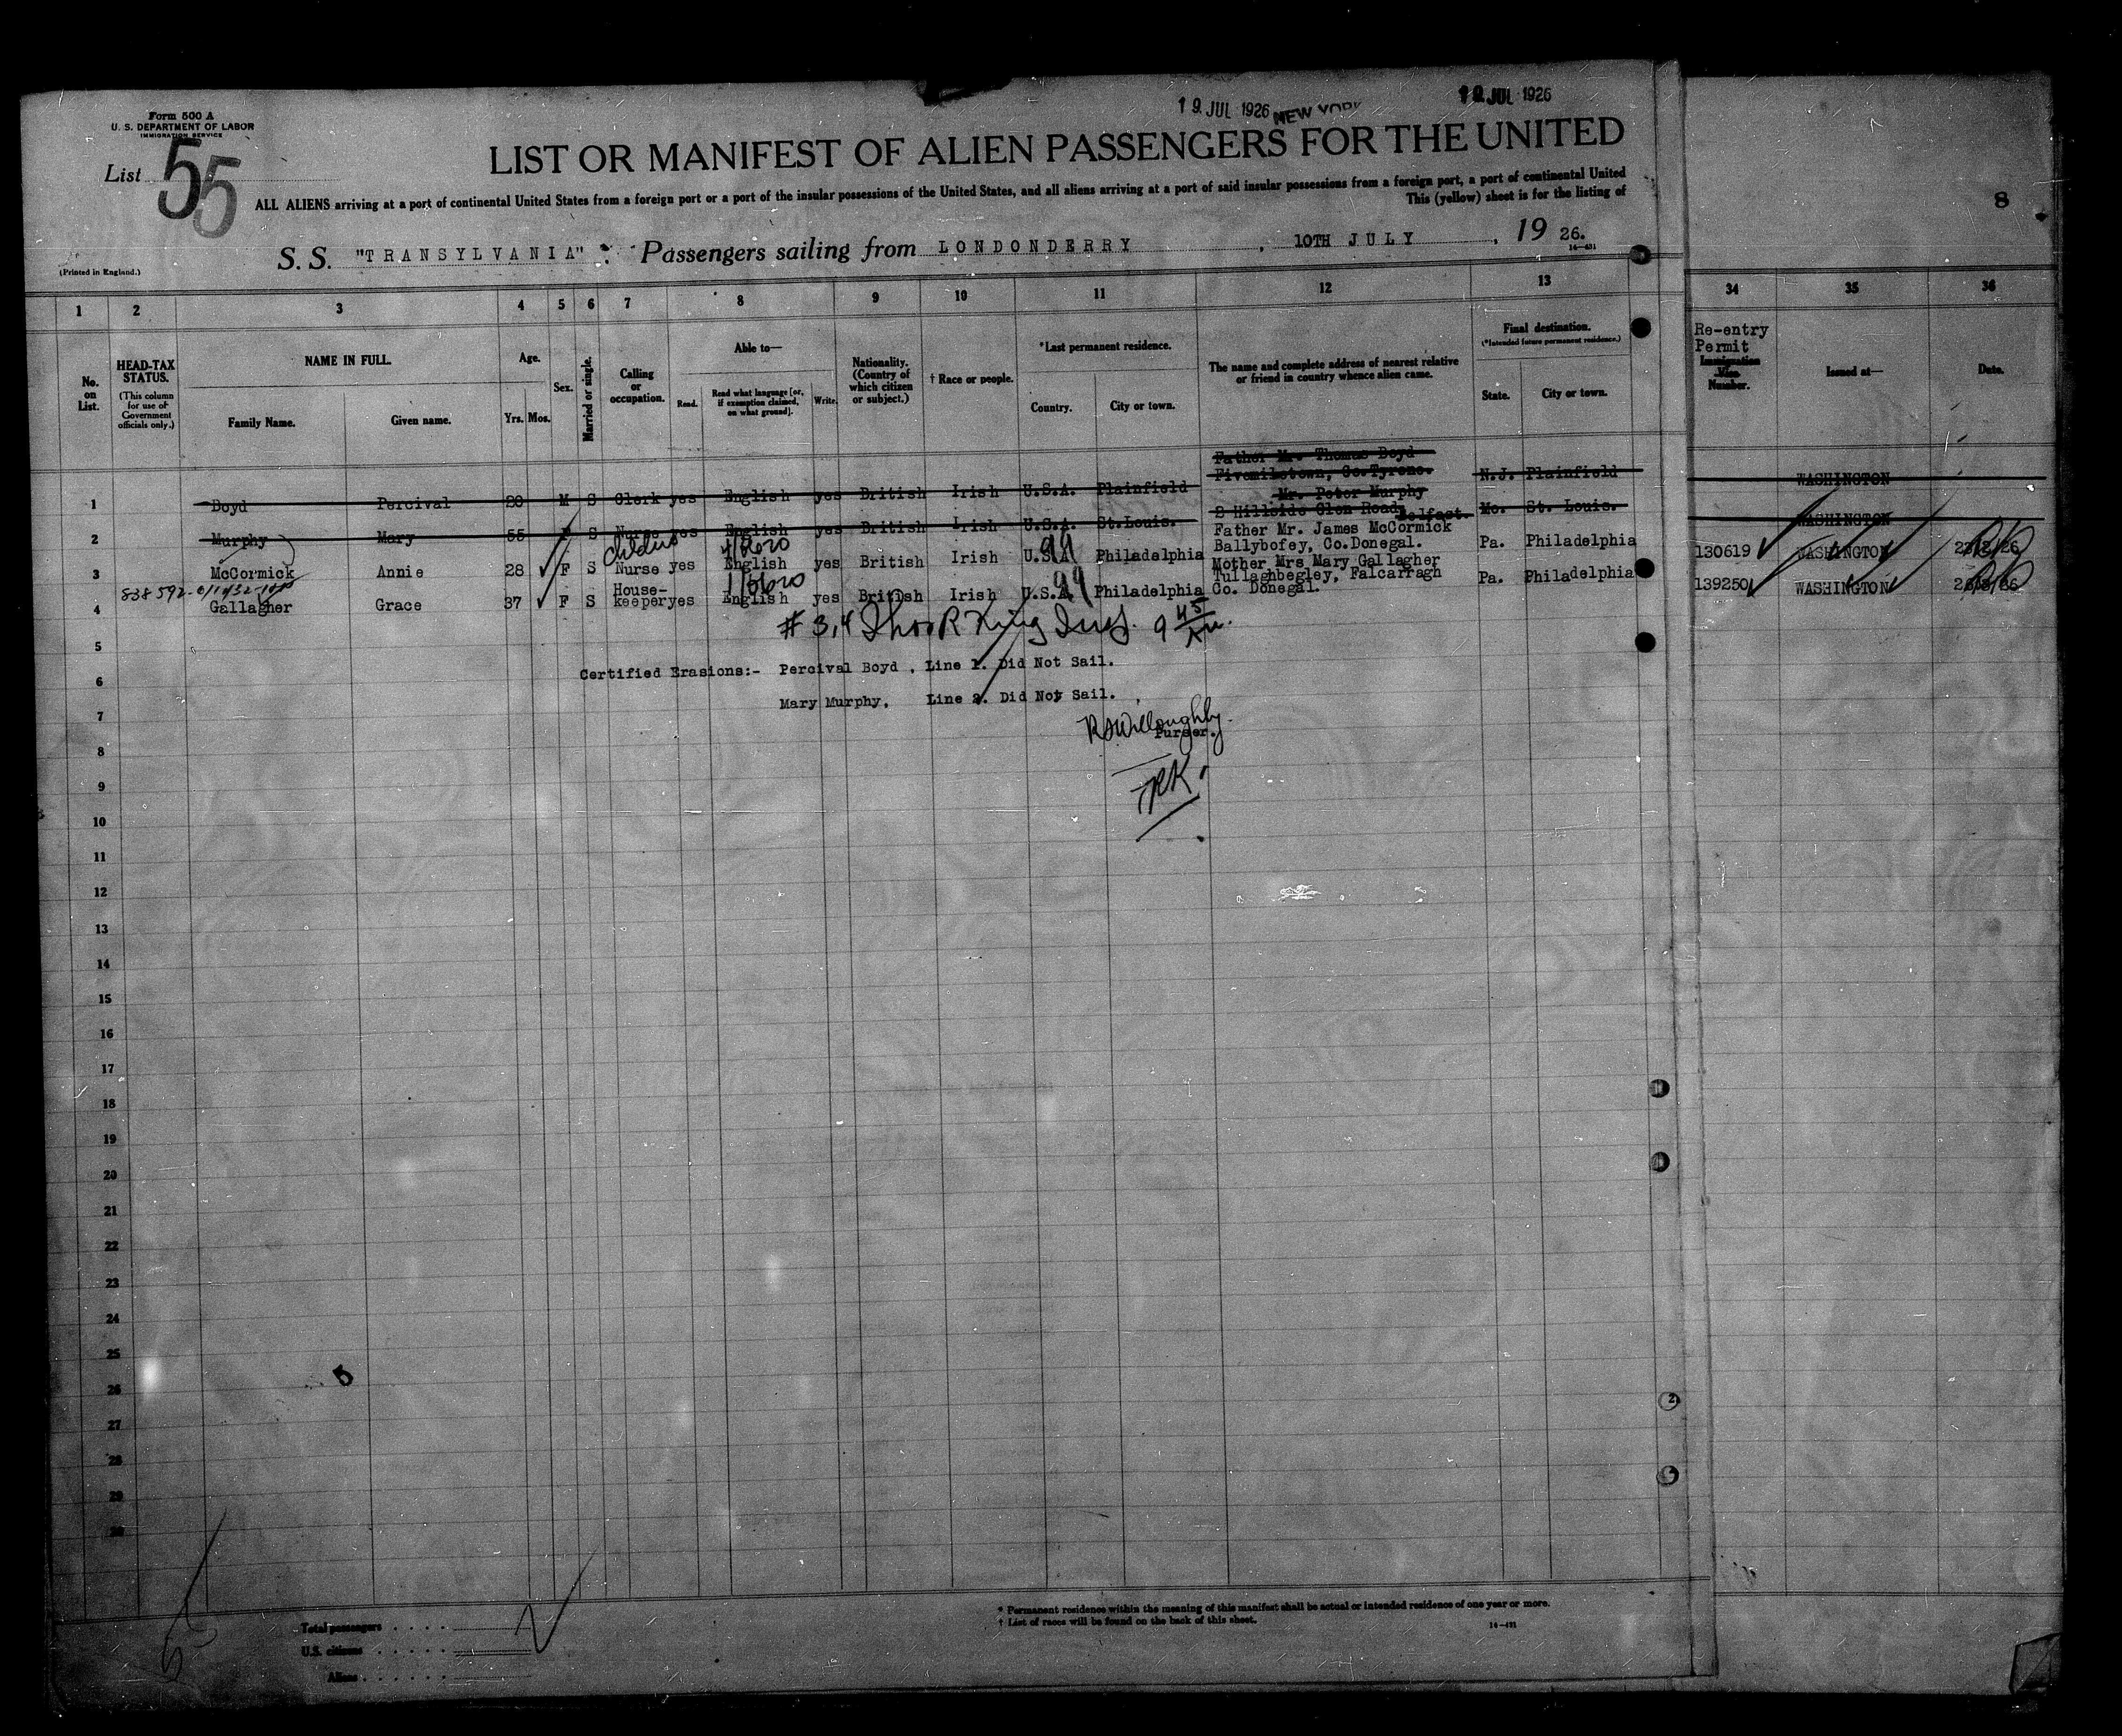 19 JUL 1926 NEW YORK 19 JUL 1926
Form 500 A
U. S. DEPARTMENT OF LABOR
IMMIGRATION SERVICE
List 55
LIST OR MANIFEST OF ALIEN PASSENGERS FOR THE UNITED
ALL ALIENS arriving at a port of continental United States from a foreign port or a port of the insular possessions of the United States, and all aliens arriving at a port of said insular possessions from a foreign port, a port of continental United
This (yellow) sheet is for the listing of
8
(Printed in England.)
S. S. "TRANSYLVANIA" Passengers sailing from LONDONDERRY, 10TH JULY, 19 26.
16—431
1 2 3 4 5 6 7 8 9 10 11 12 13 34 35 36
No. on List.
HEAD-TAX STATUS.
(This column for use of Government officials only.)
NAME IN FULL.
Family Name. Given name.
Age.
Yrs. Mos.
Sex.
Married or single.
Calling or occupation.
Able to—
Read. Read what language [or, if exemption claimed, on what ground]. Write.
Nationality. (Country of which citizen or subject.)
† Race or people.
*Last permanent residence.
Country. City or town.
The name and complete address of nearest relative or friend in country whence alien came.
Final destination.
(*Intended future permanent residence.)
State. City or town.
Re-entry Permit
Immigration Visa Number.
Issued at—
Date.
Father Mr. Thomas Boyd
Fivemiletown, Co.Tyrone.
1 Boyd Percival M S Clerk yes English yes British Irish U.S.A. Plainfield N.J. Plainfield WASHINGTON
Mr. Peter Murphy
8 Hillside Glen Road, Belfast.
2 Murphy Mary 55 F S Nurse yes English yes British Irish U.S.A. St.Louis. Mo. St. Louis. WASHINGTON
Father Mr. James McCormick
Ballybofey, Co.Donegal.
3 McCormick Annie 28 F S Nurse yes English yes British Irish U.S.A Philadelphia Pa. Philadelphia 130619 WASHINGTON
99
Mother Mrs Mary Gallagher
Tullaghbegley, Falcarragh
Co. Donegal.
838592
4 Gallagher Grace 37 F S House-keeper yes English yes British Irish U.S.A. Philadelphia Pa. Philadelphia 139250 WASHINGTON
99
# 3,4 Thos R King Insp. 9 45
5
Certified Erasions:- Percival Boyd, Line 1. Did Not Sail.
6
Mary Murphy, Line 2. Did Not Sail.
7
R Willoughby
Purser.
8
TRK
9
10
11
12
13
14
15
16
17
18
19
20
21
22
23
24
25
26
27
28
29
30
Total passengers
U.S. citizens
Aliens
* Permanent residence within the meaning of this manifest shall be actual or intended residence of one year or more.
† List of races will be found on the back of this sheet.